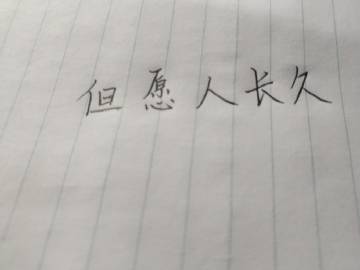 但愿人长久